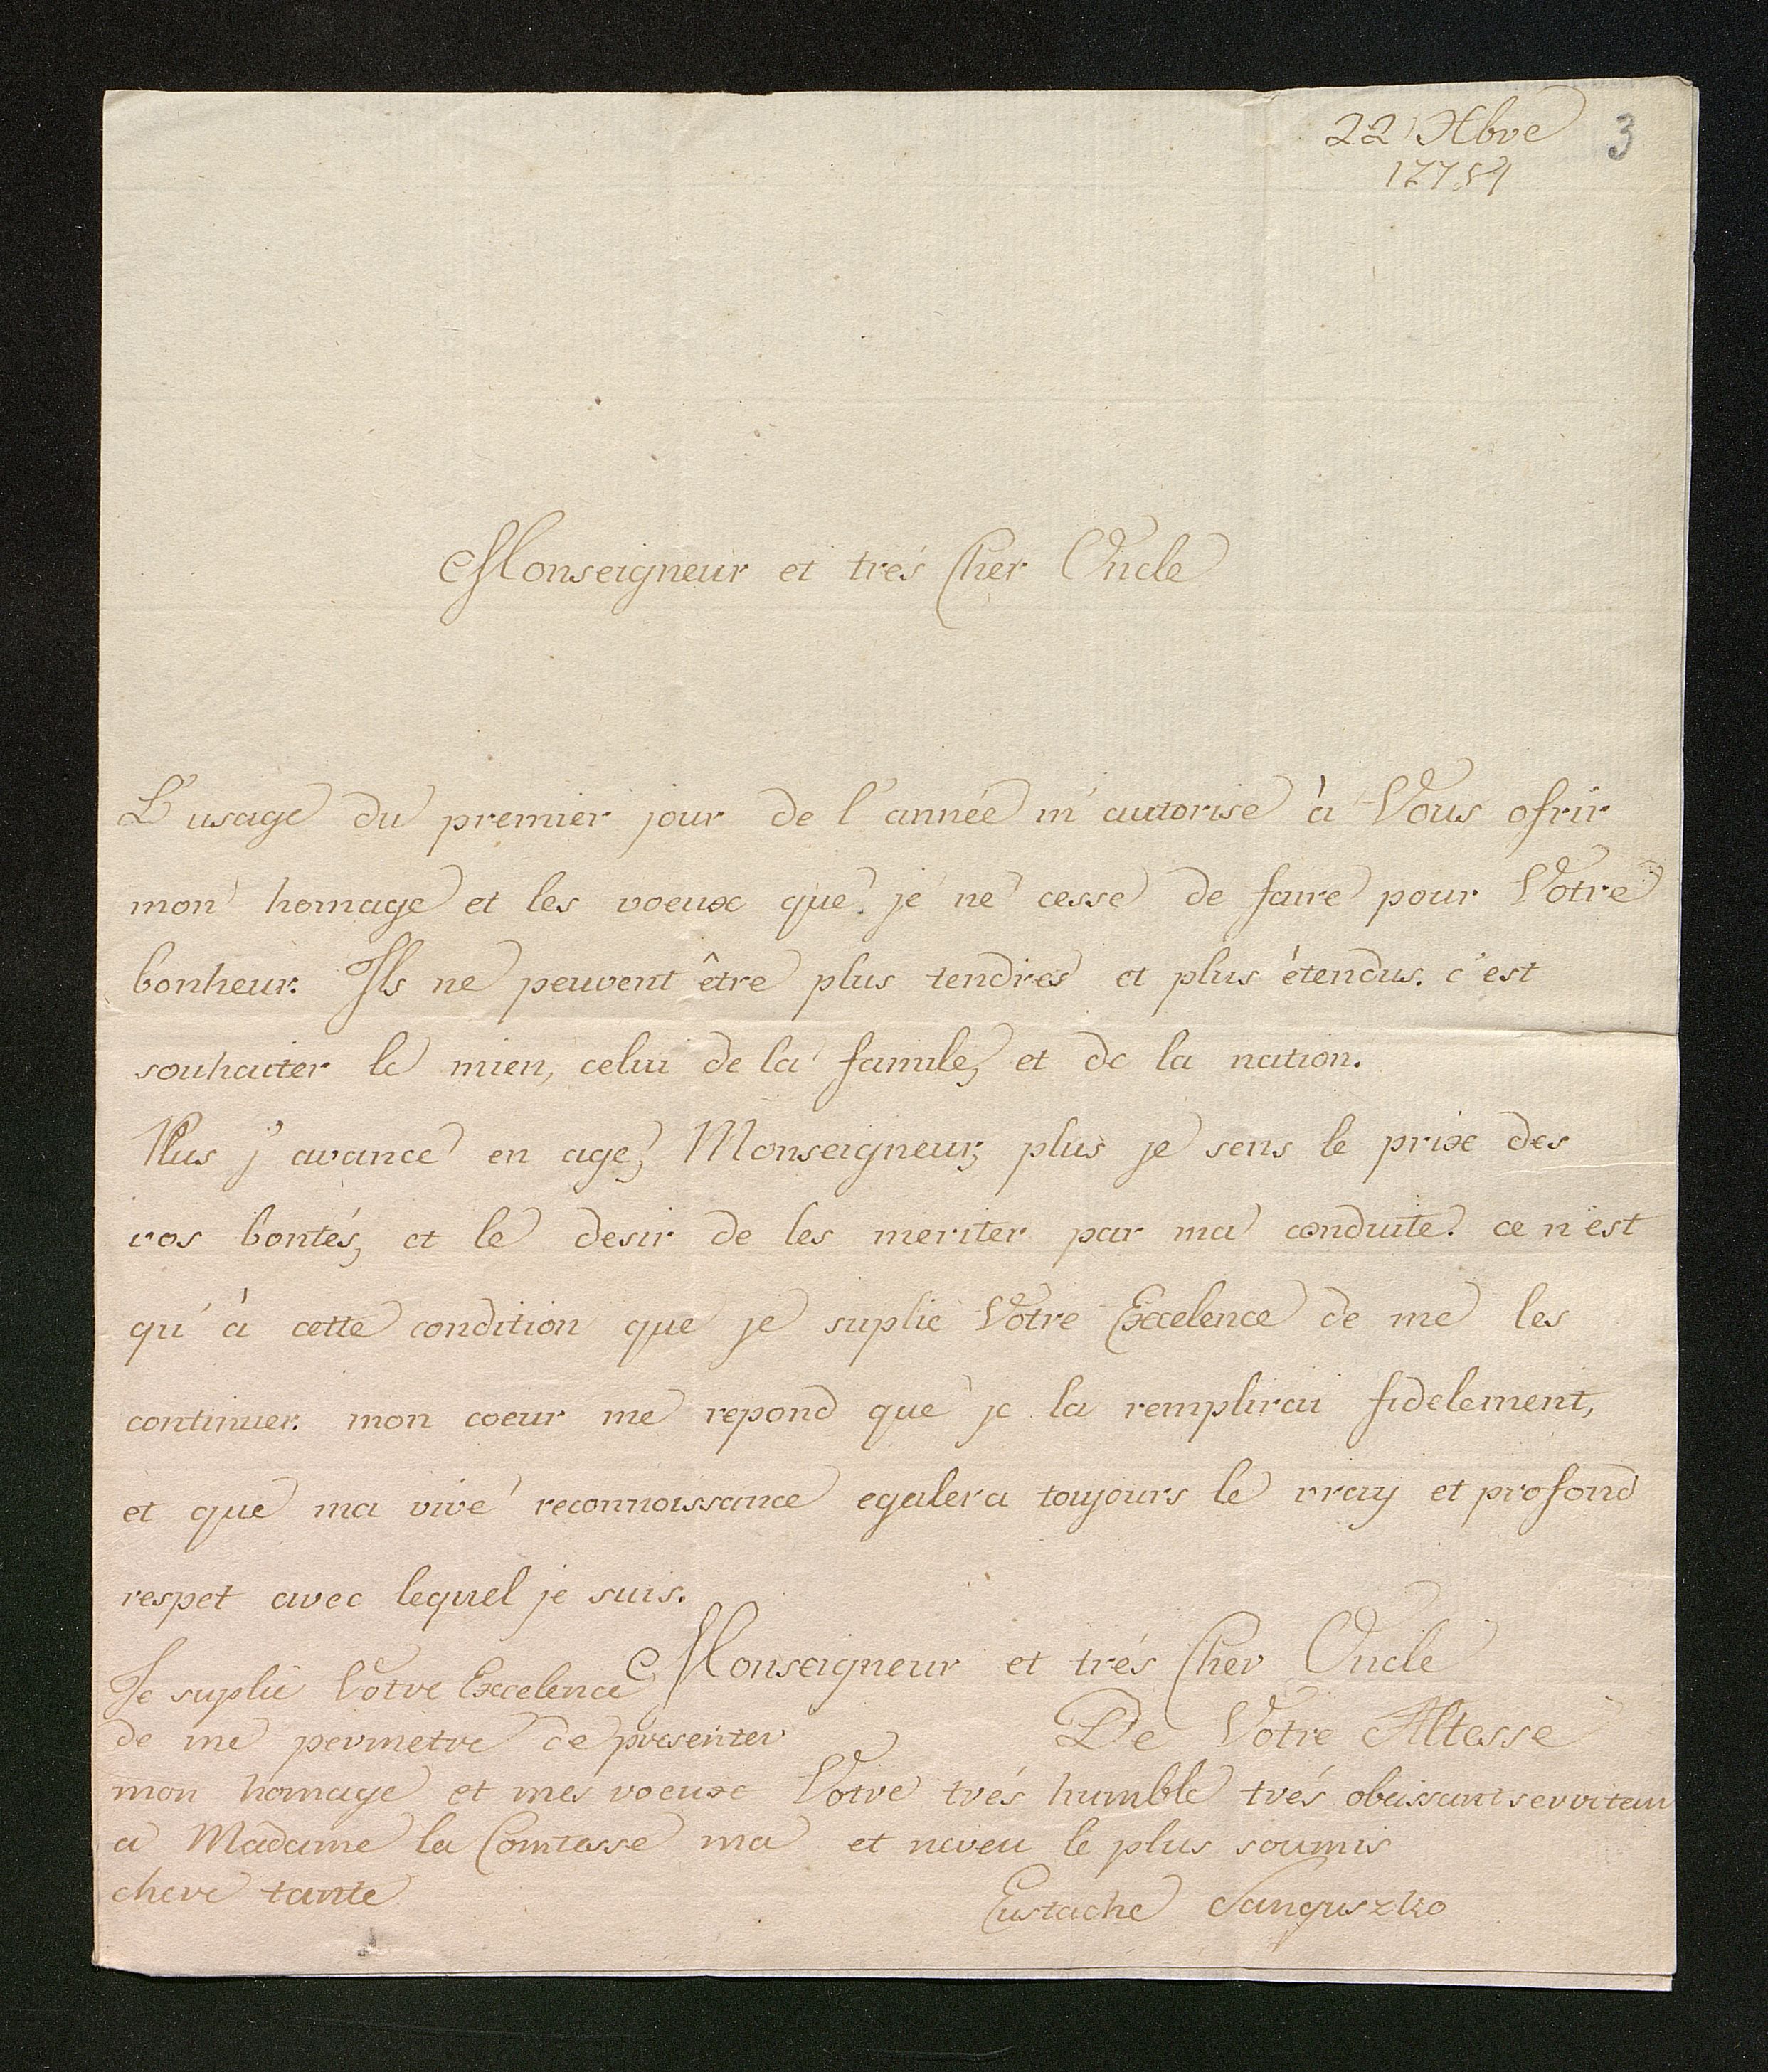 22 Xbre 3
Monseigneur et trés Cher Oncle
L'usage du premier jour de l'année m'autorise à Vous ofrir
mon homage et les voeux que je ne cesse de faire pour Votre
bonheur. Ils ne peuvent être plus tendres et plus étendus. c'est
souhaiter le mien, celui de la famile, et de la nation.
Plus j'avance en age, Monseigneur, plus je sens le prix des
vos bontés, et le desir de les meriter par ma conduite. ce n'est
qu'à cette condition que je suplie Votre Excelence de me les
continuer. mon coeur me repond que je la remplirai fidelement,
et que ma vive reconnoissance egalera toujours le vray et profond
respet avec lequel je suis.
Monseigneur et trés Cher Oncle
De Votre Altesse
Votre trés humble trés obeissant serviteur
et neveu le plus soumis
Eustache Sanguszko
Je suplie Votre Excelence
de me permetre de presenter
mon homage et mes voeux
a Madame la Comtesse ma
chere tante